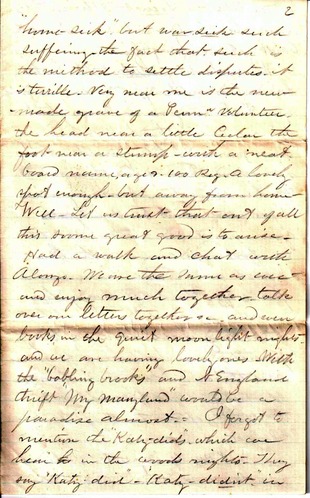 2
"home sick" but war sick such
suffering - the fact that such is
the method to settle disputes. it
is terrible. Very near me is the new
made grave of a Penn Volunteer,
the head near a little Cedar the
foot near a stump - with a neat
board name, age - 100 Reg. A lovely
spot enough - but away from home
Well - Let us trust that out of all
this some great good is to arise -
Had a walk and chat with
Alonzo. We are the same as ever
and enjoy much together, talk
over our letters together and even
books in the quiet moonlight nights
and we are having lovely ones. With
the "babbling brooks" and N. England
thrift "My Maryland" would be a
paradise almost. - I forgot to
mention the Katy-dids. which we
hear in the woods nights. They
say "Katy-did" - Katy-didn't" in